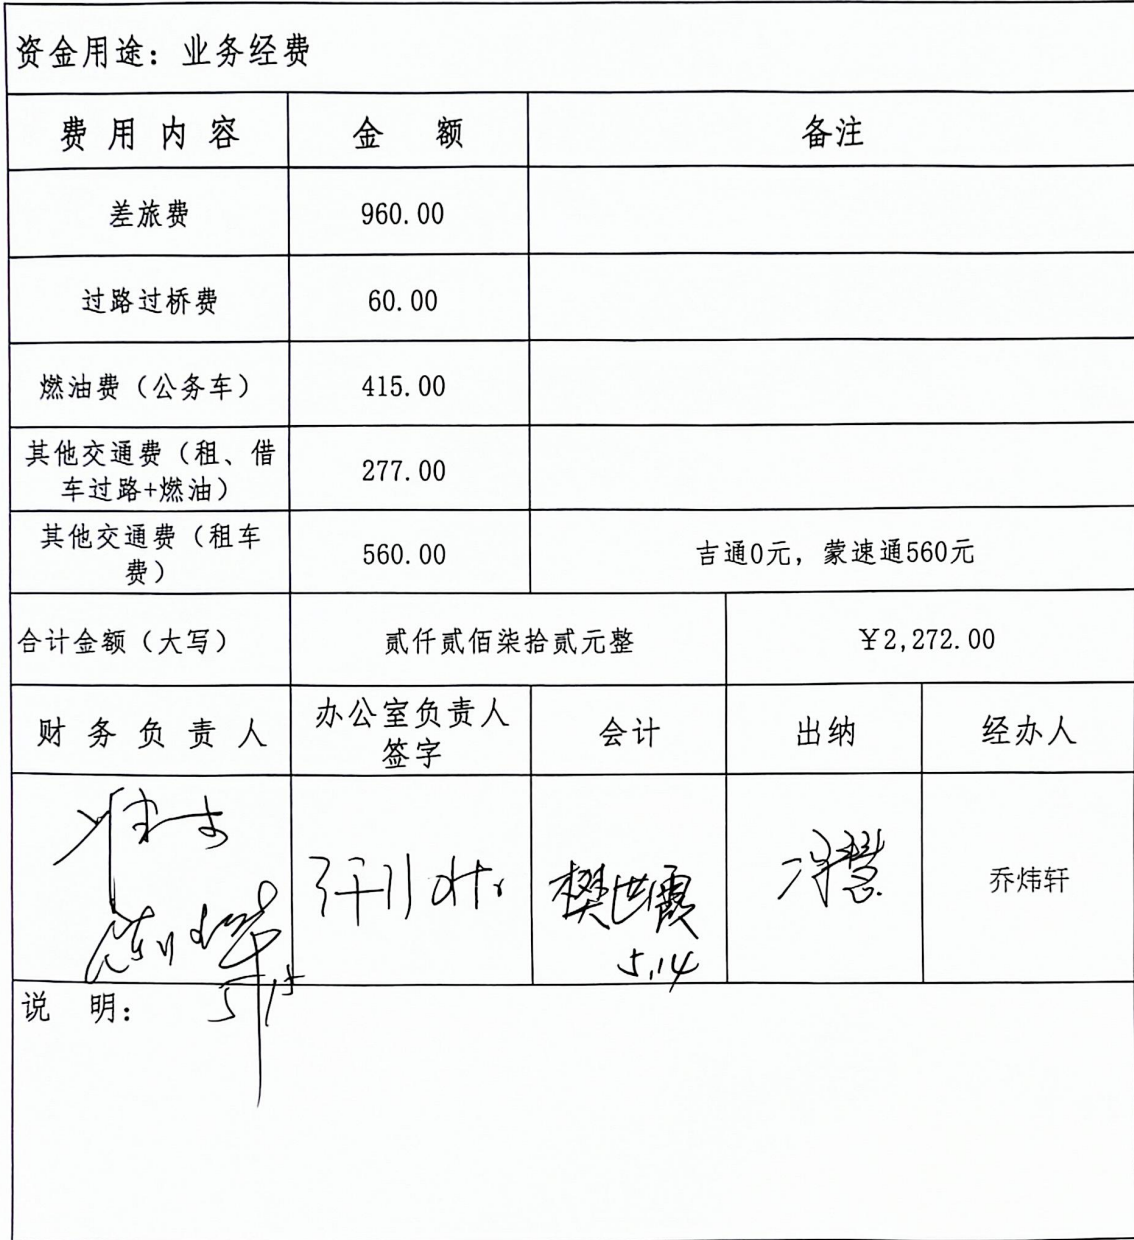 资金用途：业务经费
费用内容 金额 备注
差旅费 960.00
过路过桥费 60.00
燃油费（公务车） 415.00
其他交通费（租、借
车过路+燃油） 277.00
其他交通费（租车
费） 560.00 吉通0元，蒙速通560元
合计金额（大写） 贰仟贰佰柒拾贰元整 ￥2,272.00
财务负责人 办公室负责人
签字 会计 出纳 经办人
樊世霞 乔炜轩
5.14
5.15
说 明：